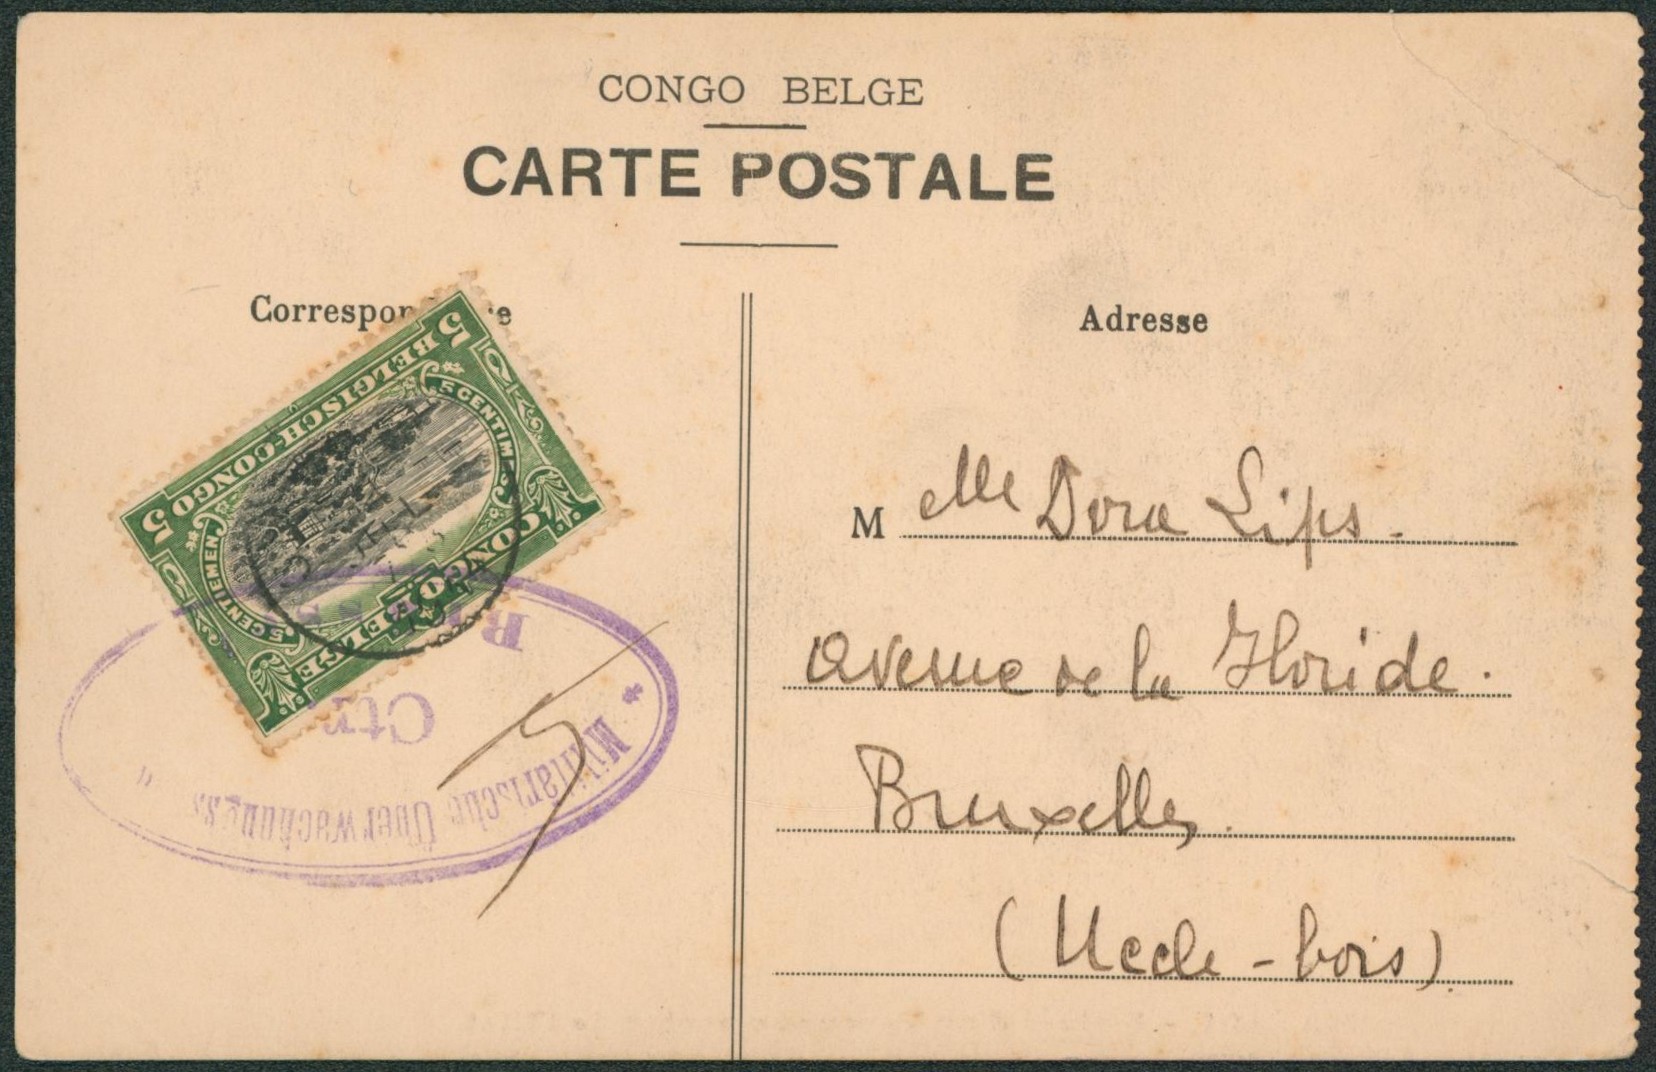 CONGO BELGE
CARTE POSTALE
Correspon
Adresse
M elle Dora Lips.
Avenue de la Floride.
Bruxelles.
(Uccle-bois)
5 BELGISCH-CONGO 5
5 CENTIMES
5 CENTIEMEN
CONGO BELGE
Ctr.
* Militärische Überwachungss